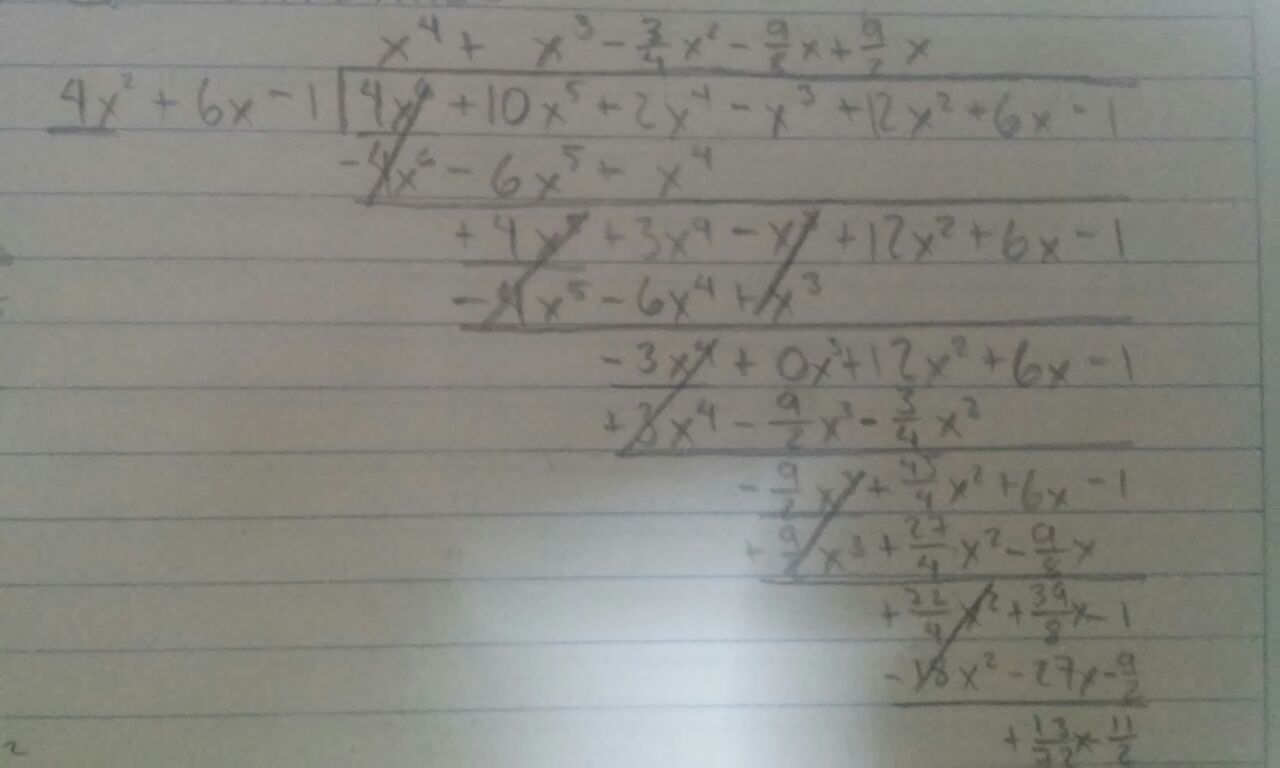 x⁴ + x³ - 3/4 x² - 9/2 x + 9/2 x
4x² + 6x - 1 | 4x⁶ + 10x⁵ + 2x⁴ - x³ + 12x² + 6x - 1
- 4x⁶ - 6x⁵ + x⁴
+ 4x⁵ + 3x⁴ - x³ + 12x² + 6x - 1
- 4x⁵ - 6x⁴ + x³
- 3x⁴ + 0x³ + 12x² + 6x - 1
+ 3x⁴ - 9/2 x³ - 3/4 x²
- 9/2 x³ + 45/4 x² + 6x - 1
+ 9/2 x³ + 27/4 x² - 9/8 x
+ 72/4 x² + 39/8 x - 1
- 18x² - 27x - 9/2
+ 13/72 x - 11/2
2